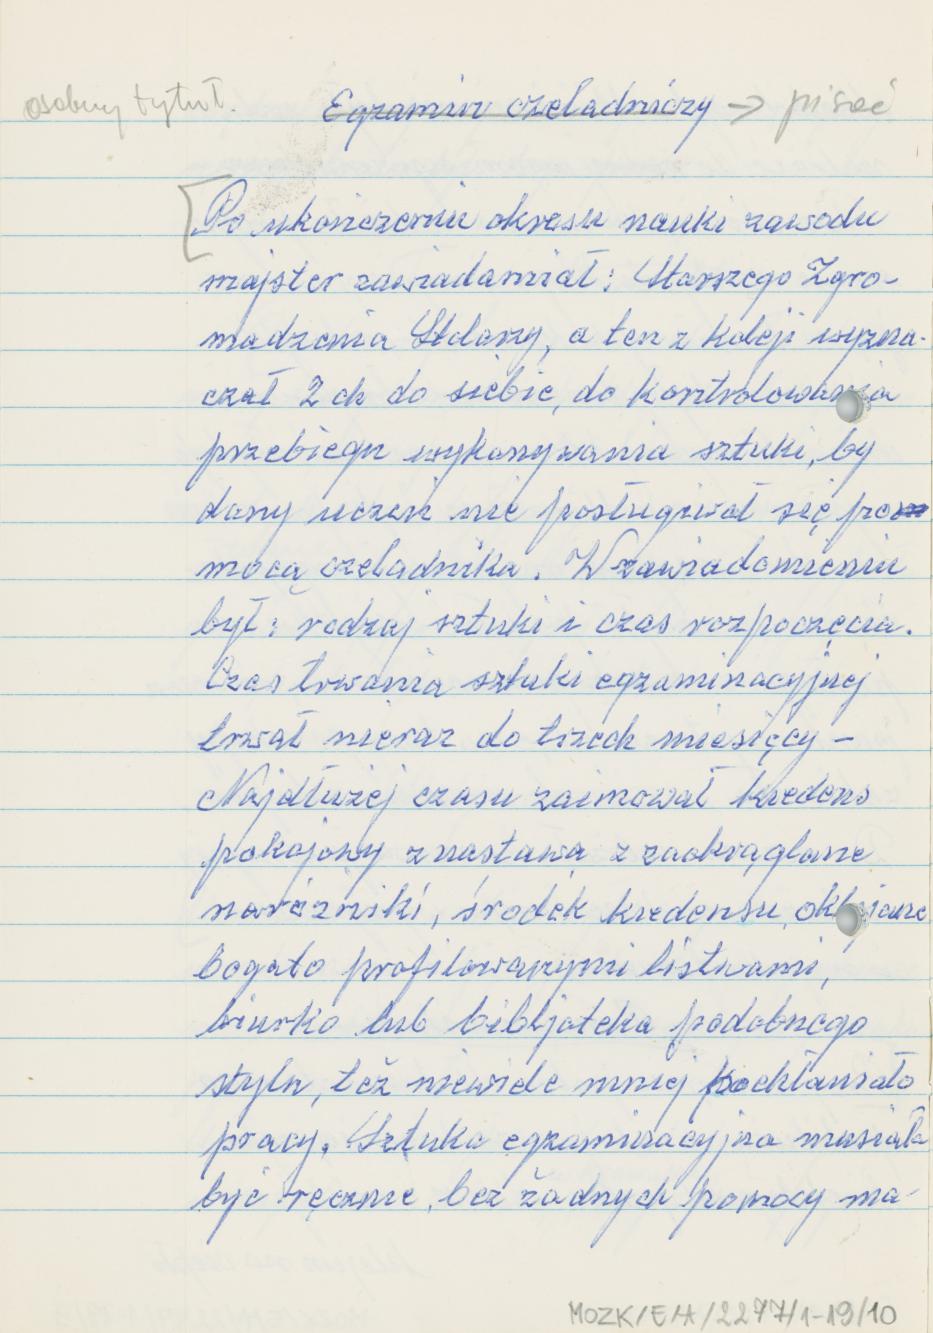 osobny tytuł. Egzamin czeladniczy → pisać
[Po ukończeniu okresu nauki zawodu
majster zawiadamiał: Starszego Zgro-
madzenia Stolarzy, a ten z kolej wyzna-
czał 2 ch do siebie, do kontrolowania
przebiegu wykonywania sztuki, by
dany uczeń nie posługiwał się po
mocą czeladnika. W zawiadomieniu
był: rodzaj sztuki i czas rozpoczęcia.
Czas trwania sztuki egzaminacyjnej
trwał nieraz do trzech miesięcy –
Najdłużej czasu zaimował kredens
pokojowy z nastawą z zaokrąglane
narożniki, środek kredensu, oklejane
bogato profilowanymi listwami,
biurko lub bibljoteka podobnego
stylu, też niewiele mniej pochłaniało
pracy. Sztuka egzaminacyjna musiała
być ręcznie, bez żadnych pomocy ma-
MOZK/E/A/2277/1-19/10